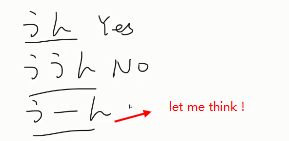 うん Yes
ううん No
うーん let me think !